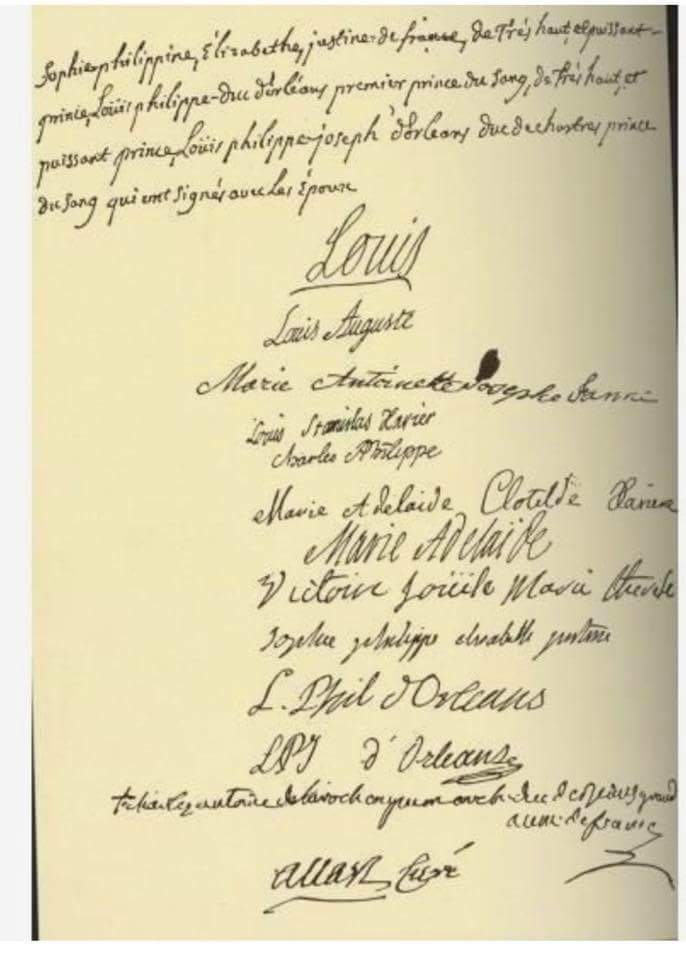 Sophie philippine, Élizabethe, justine de france, de Trés haut et puissant
prince, Loüis philippe duc d'orléans premier prince du sang, de Trés haut, et
puissant prince, Loüis philippe joseph d'orleans duc de chartres prince
du sang qui ont signés avec les Époux
Louis
Louis Auguste
Marie Antoinette Josepha Janne
Louis Stanislas Xavier
Charles Philippe
Marie Adelaide Clotilde Xaviere
Marie Adelaide
Victoire Loüise Marie Therese
Sophie philippe elisabeth justine
L. Phil d'Orleans
LPJ d'Orleans
† charles antoine de la roche aymon arch. duc de reims grand
aum. de france
allart Curé